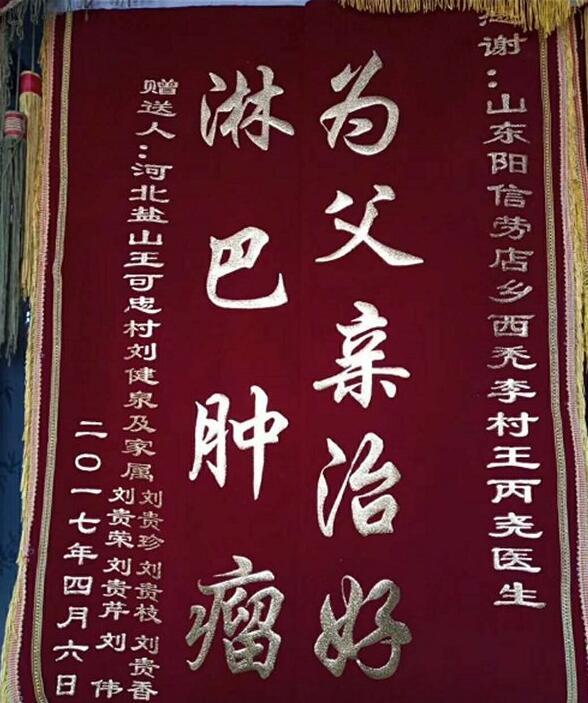 感谢：山东阳信劳店乡西秃李村王丙尧医生
为父亲治好
淋巴肿瘤
赠送人：河北盐山王可忠村刘健泉及家属
刘贵珍 刘贵枝 刘贵香
刘贵荣 刘贵芹 刘伟
二〇一七年四月六日